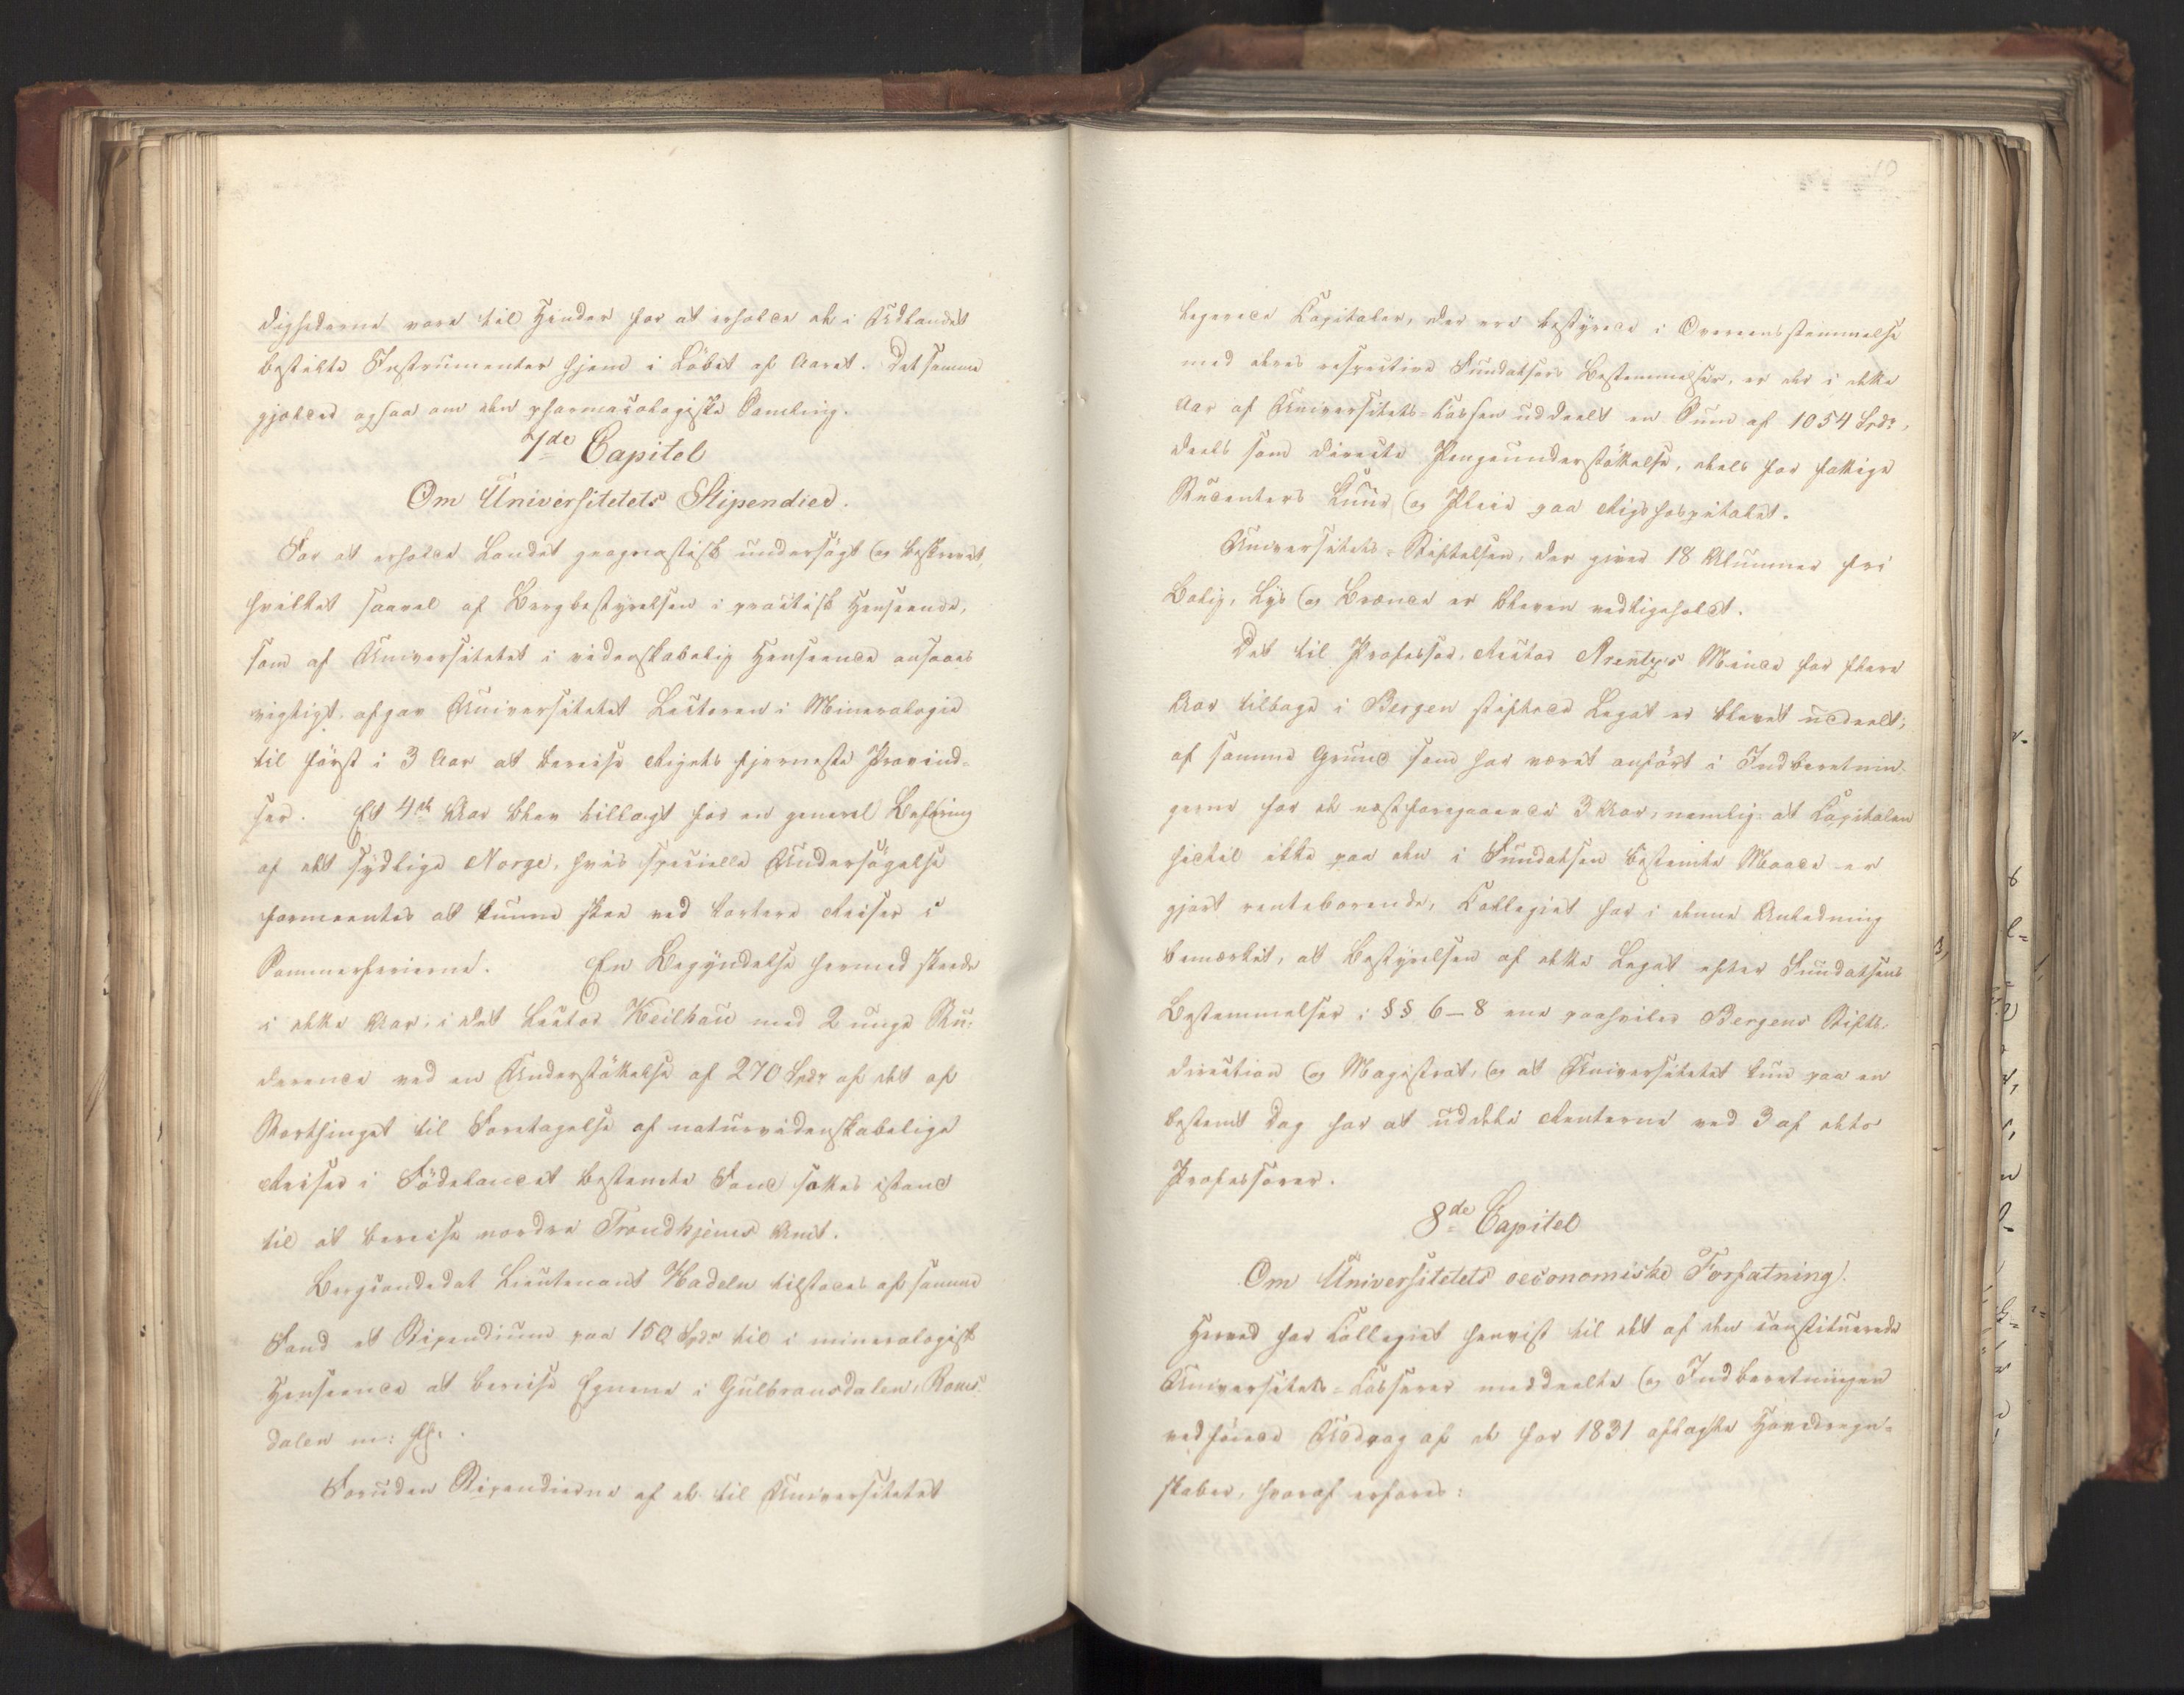 dighederne vare til Hinder for at erholde de i Udlandet
bestilte Instrumenter hjem i Löbet af Aaret. Det samme
gjelder ogsaa om den pharmacologiske Samling.
7de Capitel
Om Universitetets Stipendier.
For at erholde Landet geognostisk undersögt og beskrevet,
hvilket saavel af Bergbestyrelsen i practisk Henseende,
som af Universitetet i videnskabelig Henseende ansaaes
vigtigt, afgav Universitetet Lectoren i Mineralogie
til först i 3 Aar at bereise Rigets fjerneste Provind-
ser. Et 4de Aar blev tillagt for en general Befaring
af det sydlige Norge, hvis specielle Undersögelse
formeentes at kunne skee ved kortere Reiser i
Sommerferierne. En Begyndelse hermed skeede
i dette Aar, i det Lector Keilhau med 2 unge Stu-
derende ved en Understöttelse af 270 Spdr af det af
Storthinget til Foretagelse af naturvidenskabelige
Reiser i Födelandet bestemte Fond sattes istand
til at bereise nordre Trondhjems Amt.
Bergcandidat Lieutenant Hadeln tilstodes af samme
Fond et Stipendium paa 150 Spdr til i mineralogisk
Henseende at bereise Egnene i Gulbransdalen, Roms-
dalen m: fl:.
Foruden Stipendierne af de til Universitetet
10
legerede Capitaler, der ere bestyrede i Overeensstemmelse
med deres respective Fundatsers Bestemmelser, er der i dette
Aar af Universitets-Cassen uddeelt en Sum af 1054 Spdr,
deels som directe Pengeunderstöttelse, deels for fattige
Studenters Kuur og Pleie paa Rigshospitalet.
Universitets-Stiftelsen, der giver 18 Alumner fri
Bolig, Lys og Brænde er bleven vedligeholdt.
Det til Professor, Rector Arentz's Minde for flere
Aar tilbage i Bergen stiftede Legat er blevet uddeelt;
af samme Grund som har været anfört i Indberetnin-
gerne for de næstforegaaende 3 Aar, nemlig: at Capitalen
hidtil ikke paa den i Fundatsen bestemte Maade er
gjort rentebærende, Collegiet har i denne Anledning
bemærket, at Bestyrelsen af dette Legat efter Fundatsens
Bestemmelser i §§ 6-8 ene paahviler Bergens Stifts-
direction og Magistrat, og at Universitetet kun paa en
bestemt Dag har at uddele Renterne ved 3 af dets
Professorer.
8de Capitel
Om Universitetets oeconomiske Forfatning.
Herved har Collegiet henvist til det af den constituerede
Universitets-Casserer meddeelte og Indberetningen
vedföiede Uddrag af de for 1831 aflagte Hovedregn-
skaber, hvoraf erfares: